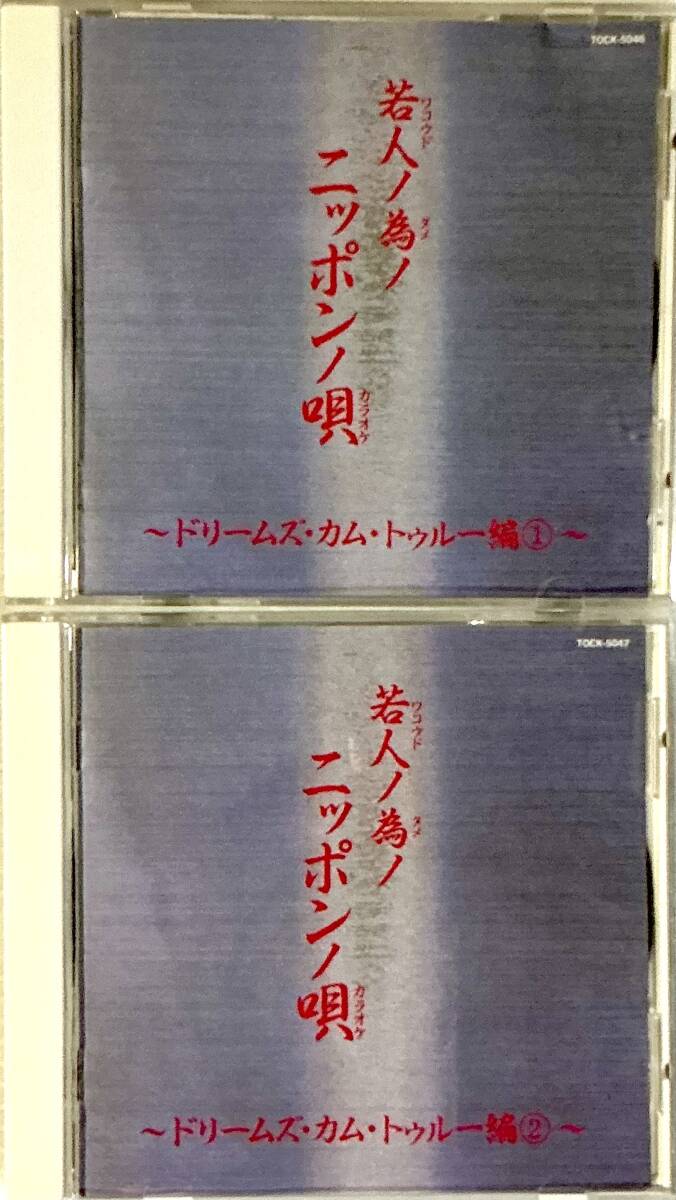 TOCX-5046
若人ノ為ノ
ワコウド
タメ
ニッポンノ唄
カラオケ
～ドリームズ・カム・トゥルー編①～
TOCX-5047
若人ノ為ノ
ワコウド
タメ
ニッポンノ唄
カラオケ
～ドリームズ・カム・トゥルー編②～